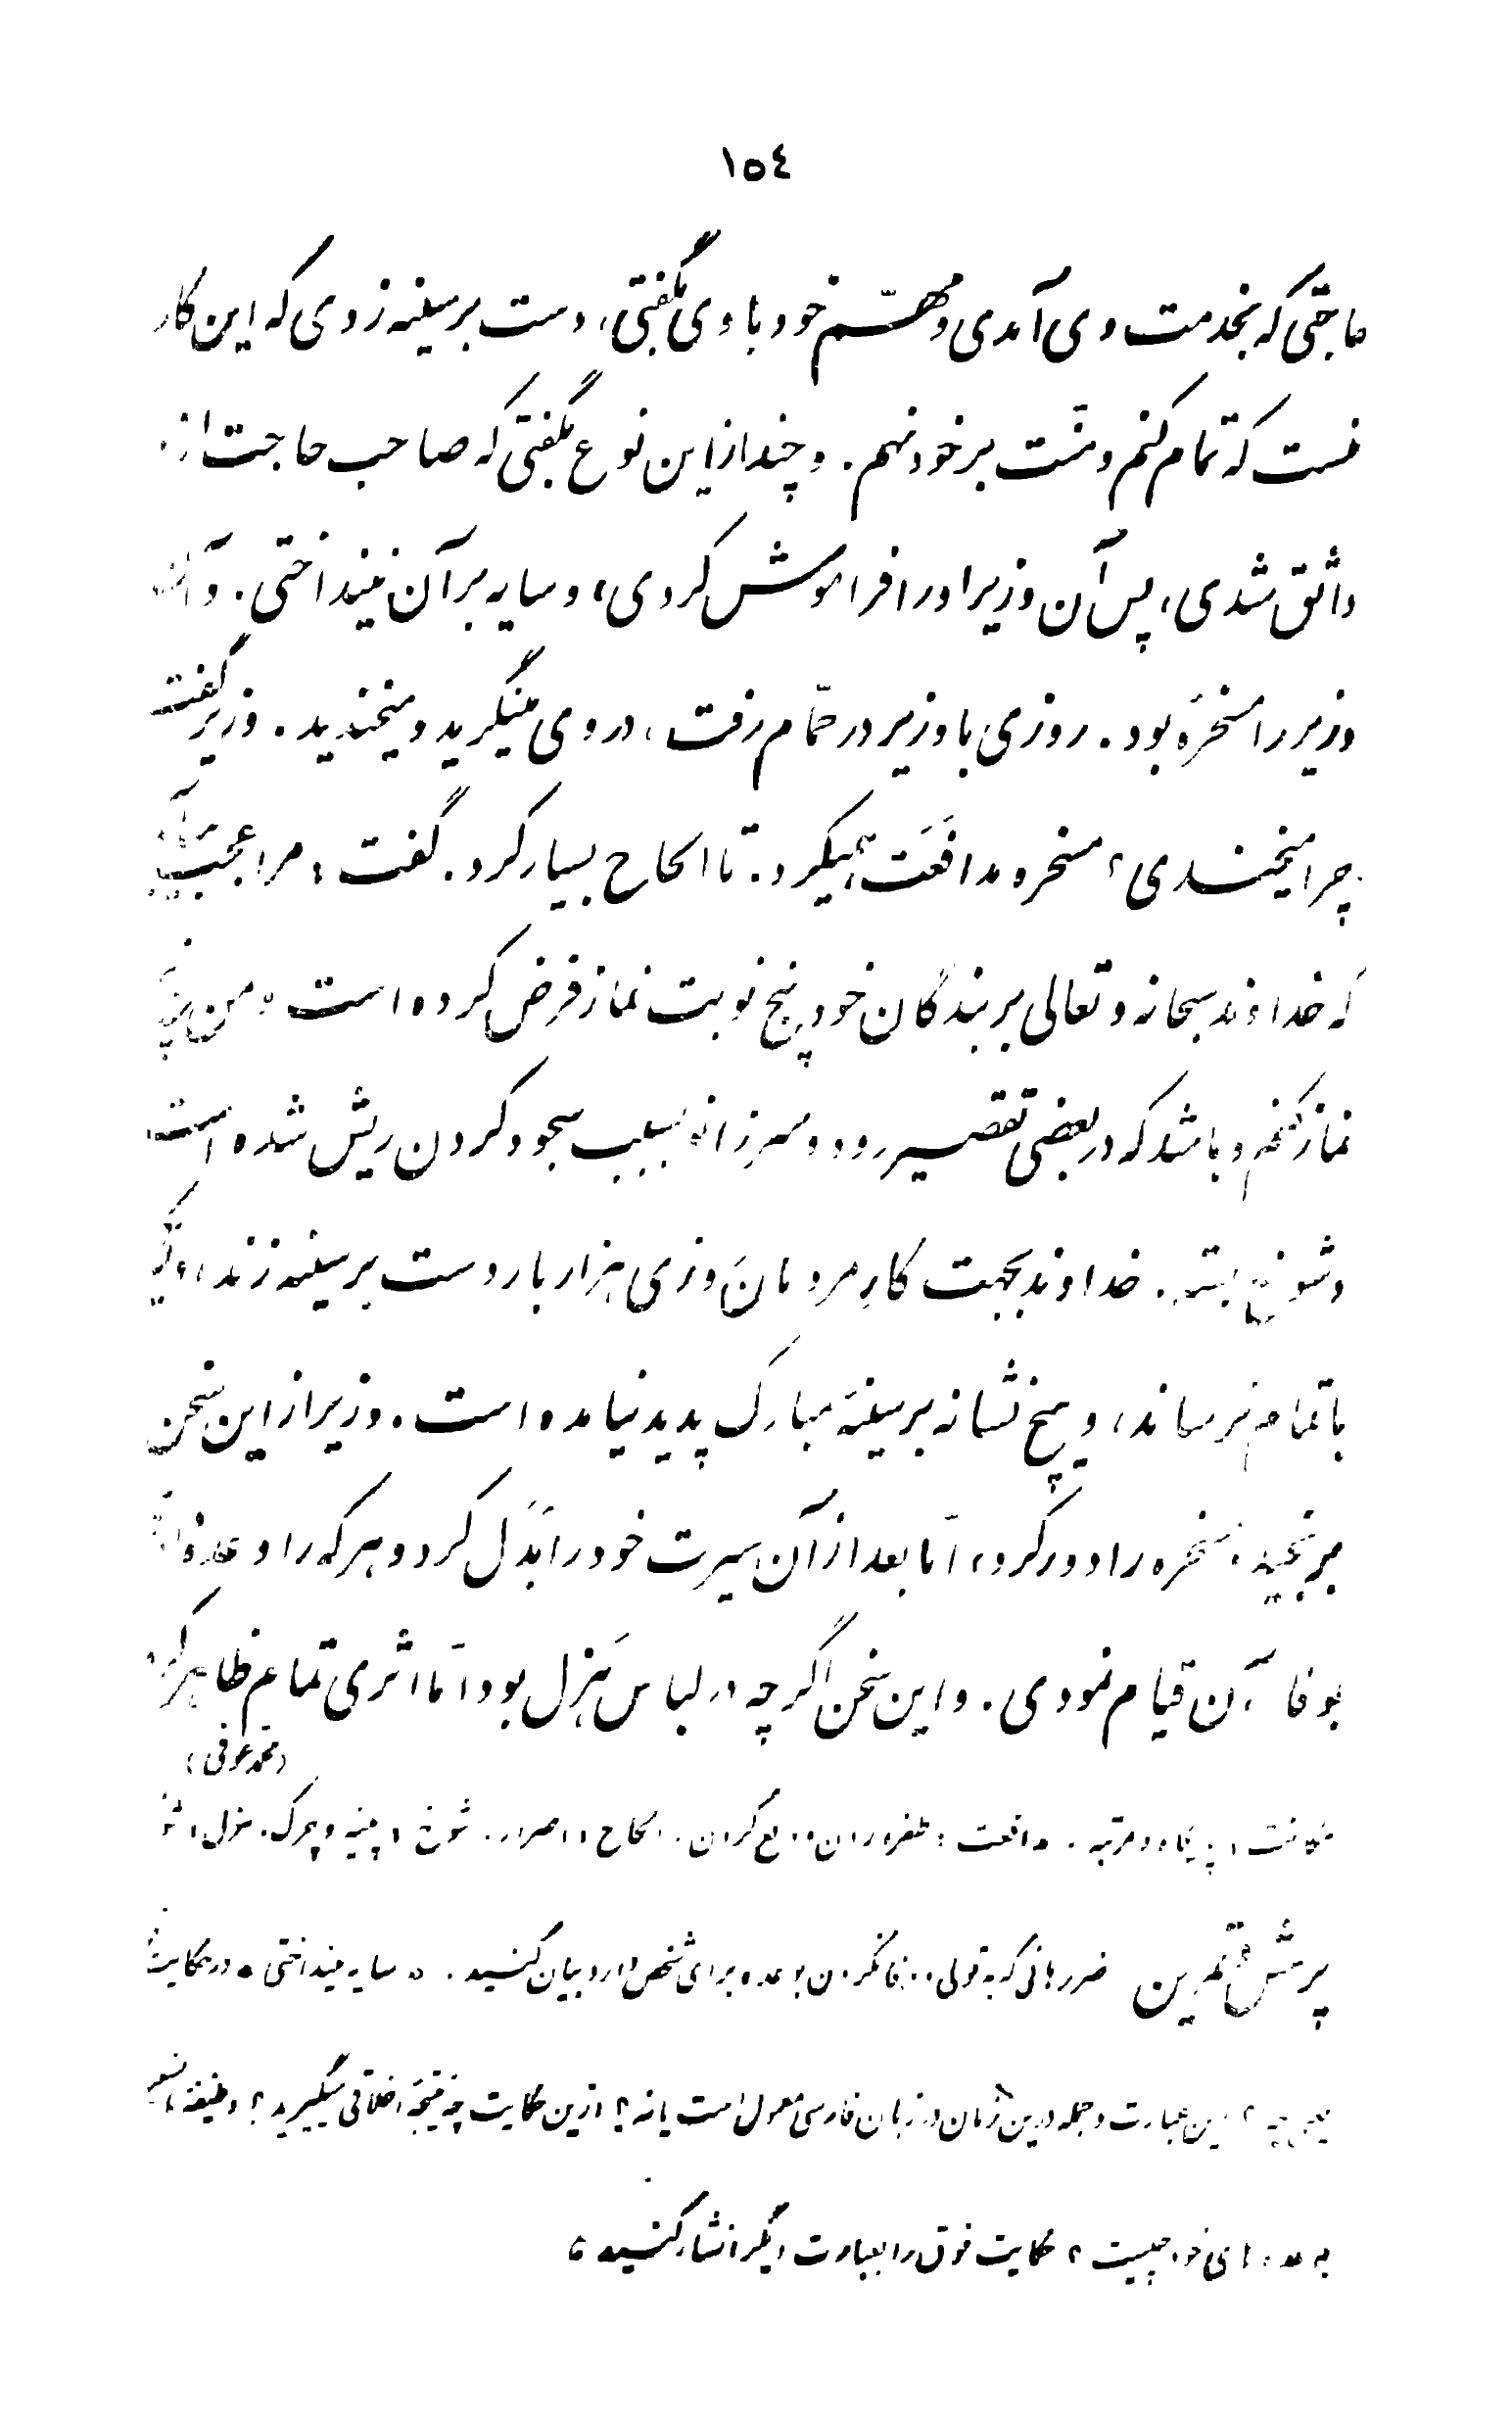 ١٥٤
حاجتی که بخدمت وی آمدی و مهمّ خود با وی بگفتی، دست بر سینه زدی که این کار
منست که تمام کنم و منّت بر خود نهم. و چند از این نوع بگفتی که صاحب حاجت از
واثق شدی، پس آن وزیر او را فراموش کردی، و سایه بر آن نینداختی. و
وزیر را مسخرهٔ بود. روزی با وزیر در حمّام رفت، در وی مینگرید و میخندید. وزیر گفت
چرا میخندی؟ مسخره مدافَعَت میکرد. تا الحاح بسیار کرد. گفت: مرا عجب
که خداوند سبحانه و تعالی بر بندگان خود پنج نوبت نماز فرض کرده است و من
نماز کنم و باشد که در بعضی تقصیر رود و سر زانو بسبب سجود کردن ریش شده است
و شوخ بسته. خداوند بجهت کارِ مردمان روزی هزار بار دست بر سینه زند، و
باتمام نرساند، و هیچ نشانه بر سینهٔ مبارک پدید نیامده است. وزیر از این سخن
برنجید، مسخره را دور کرد، امّا بعد از آن سیرت خود را بَدَل کرد و هر که را وعده
بوفاء آن قیام نمودی. و این سخن اگر چه در لباس هَزل بود امّا اثری تمام ظاهر کرد
(محمد عوفی)
پایگاه و مرتبه. مدافعت: طفره زدن و دفع کردن. الحاح: اصرار. شوخ: پینه و چرک. هزل:
پرسش و تمرین ضررهائی که به قولی وفا نکردن بوعده برای شخص دارد بیان کنید. «سایه نینداختی» در حکایت
یعنی چه؟ این عبارت و جمله درین زمان در زبان فارسی معمول است یا نه؟ ازین حکایت چه نتیجهٔ اخلاقی میگیرید؟ وظیفهٔ
به وعده‌های خود چیست؟ حکایت فوق را بعبارت دیگر انشاء کنید؟